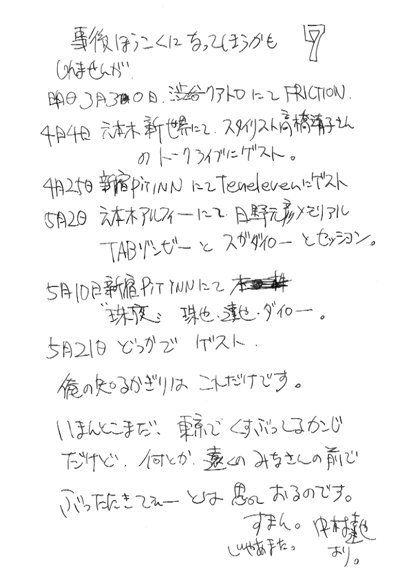 事後ほうこくになってしまうかも 7
しれませんが
明日3月30日、渋谷クアトロにてFRICTION.
4月4日 六本木新世界にて、スタイリスト高橋靖子さん
のトークライブにゲスト。
4月25日新宿PiT INNにてTenelevenにゲスト
5月2日 六本木アルフィーにて、日野元彦メモリアル
TABゾンビーとスガダイローとセッション。
5月10日新宿PiT INNにて
"珠夜" 珠也・達也・ダイロー。
5月21日 どっかで ゲスト.
俺の知るかぎりは これだけです。
いまんとこまだ、東京で くすぶってるかんじ
だけど、何とか 遠くの みなさんの前で
ぶったたきてぇーとは 思っておるのです。
すまん。 中村達也
じゃあまた。 より。